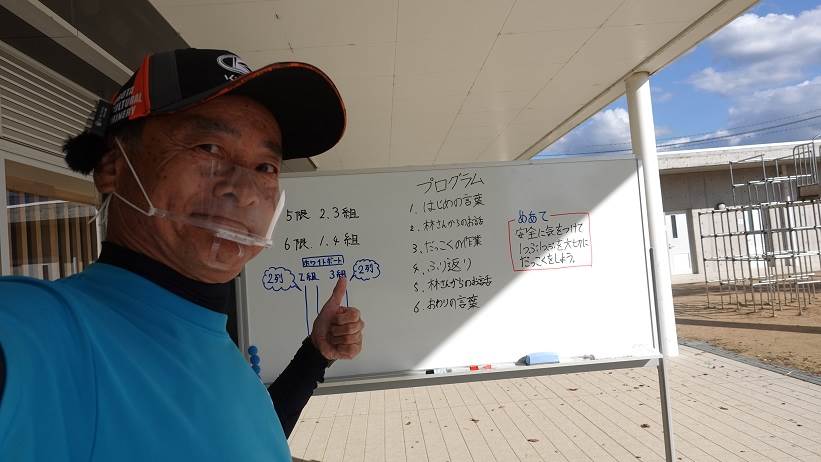 プログラム
1. はじめの言葉
2. 林さんからのお話
3. だっこくの作業
4. ふり返り
5. 林さんからのお話
6. おわりの言葉
5限 2.3組
6限 1.4組
ホワイトボード
2列 2組 3組 2列
めあて
安全に気をつけて
1つぶ1つぶを大切に
だっこくをしよう。